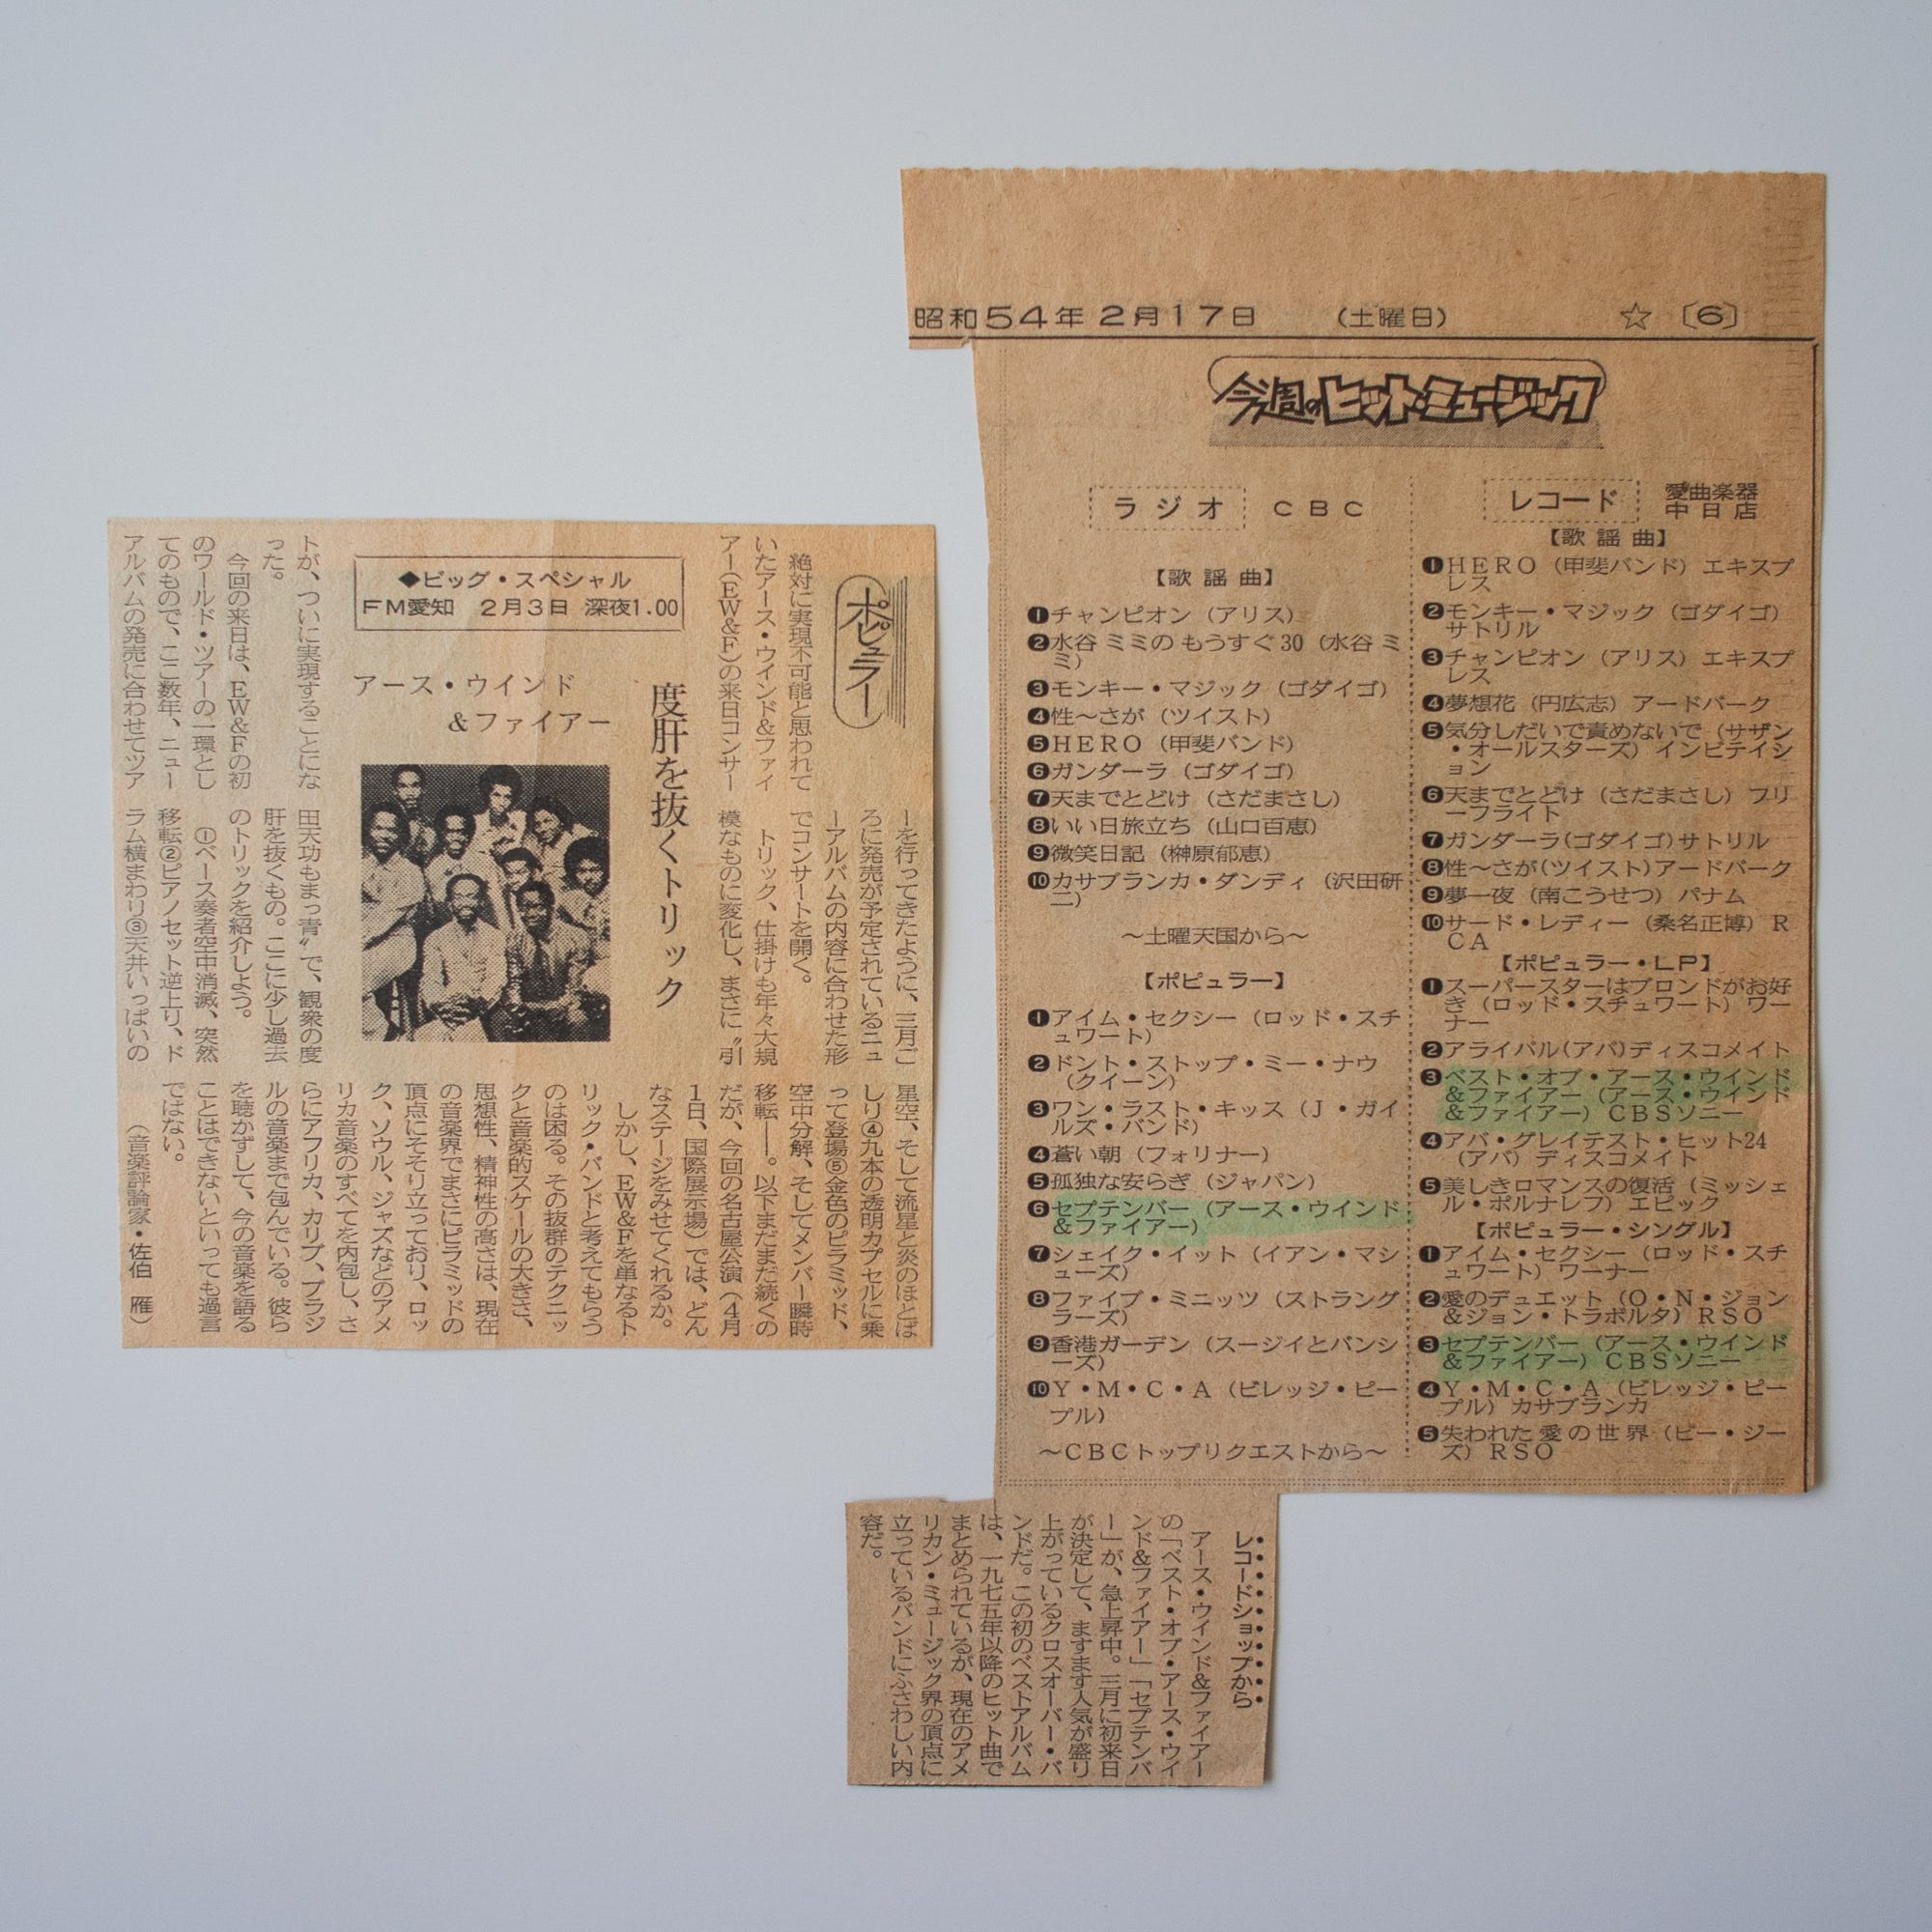 ポピュラー
◆ビッグ・スペシャル
FM愛知　2月3日 深夜1.00
度肝を抜くトリック
アース・ウインド
＆ファイアー
絶対に実現不可能と思われて
いたアース・ウインド＆ファイ
アー(EW＆F)の来日コンサー
トが、ついに実現することにな
った。
今回の来日は、EW＆Fの初
のワールド・ツアーの一環とし
てのもので、ここ数年、ニュー
アルバムの発売に合わせてツア
ーを行ってきたように、三月ご
ろに発売が予定されているニュ
ーアルバムの内容に合わせた形
でコンサートを開く。
トリック、仕掛けも年々大規
模なものに変化し、まさに〝引
田天功もまっ青〟で、観衆の度
肝を抜くもの。ここに少し過去
のトリックを紹介しよう。
①ベース奏者空中消滅、突然
移転②ピアノセット逆上り、ド
ラム横まわり③天井いっぱいの
星空、そして流星と炎のほとば
しり④九本の透明カプセルに乗
って登場⑤金色のピラミッド、
空中分解、そしてメンバー瞬時
移転――。以下まだまだ続くの
だが、今回の名古屋公演（4月
1日、国際展示場）では、どん
なステージをみせてくれるか。
しかし、EW＆Fを単なるト
リック・バンドと考えてもらう
のは困る。その抜群のテクニッ
クと音楽的スケールの大きさ、
思想性、精神性の高さは、現在
の音楽界でまさにピラミッドの
頂点にそそり立っており、ロッ
ク、ソウル、ジャズなどのアメ
リカ音楽のすべてを内包し、さ
らにアフリカ、カリブ、ブラジ
ルの音楽まで包んでいる。彼ら
を聴かずして、今の音楽を語る
ことはできないといっても過言
ではない。
（音楽評論家・佐伯　雁）
昭和54年2月17日　（土曜日）　☆　〔6〕
今週のヒット・ミュージック
ラジオ　CBC
【歌謡曲】
❶チャンピオン（アリス）
❷水谷ミミの もうすぐ30（水谷ミ
ミ）
❸モンキー・マジック（ゴダイゴ）
❹性～さが（ツイスト）
❺HERO（甲斐バンド）
❻ガンダーラ（ゴダイゴ）
❼天までとどけ（さだまさし）
❽いい日旅立ち（山口百恵）
❾微笑日記（榊原郁恵）
❿カサブランカ・ダンディ（沢田研
二）
～土曜天国から～
【ポピュラー】
❶アイム・セクシー（ロッド・スチ
ュワート）
❷ドント・ストップ・ミー・ナウ
（クイーン）
❸ワン・ラスト・キッス（J・ガイ
ルズ・バンド）
❹蒼い朝（フォリナー）
❺孤独な安らぎ（ジャパン）
❻セプテンバー（アース・ウインド
＆ファイアー）
❼シェイク・イット（イアン・マシ
ューズ）
❽ファイブ・ミニッツ（ストラング
ラーズ）
❾香港ガーデン（スージイとバンシ
ーズ）
❿Y・M・C・A（ビレッジ・ピー
プル）
～CBCトップリクエストから～
レコード　愛曲楽器
中日店
【歌謡曲】
❶HERO（甲斐バンド）エキスプ
レス
❷モンキー・マジック（ゴダイゴ）
サトリル
❸チャンピオン（アリス）エキスプ
レス
❹夢想花（円広志）アードバーク
❺気分しだいで責めないで（サザン
・オールスターズ）インビテイシ
ョン
❻天までとどけ（さだまさし）フリ
ーフライト
❼ガンダーラ(ゴダイゴ)サトリル
❽性～さが(ツイスト)アードバーク
❾夢一夜（南こうせつ）パナム
❿サード・レディー（桑名正博）R
CA
【ポピュラー・LP】
❶スーパースターはブロンドがお好
き（ロッド・スチュワート）ワー
ナー
❷アライバル(アバ)ディスコメイト
❸ベスト・オブ・アース・ウインド
＆ファイアー（アース・ウインド
＆ファイアー）CBSソニー
❹アバ・グレイテスト・ヒット24
（アバ）ディスコメイト
❺美しきロマンスの復活（ミッシェ
ル・ポルナレフ）エピック
【ポピュラー・シングル】
❶アイム・セクシー（ロッド・スチ
ュワート）ワーナー
❷愛のデュエット（O・N・ジョン
＆ジョン・トラボルタ）RSO
❸セプテンバー（アース・ウインド
＆ファイアー）CBSソニー
❹Y・M・C・A（ビレッジ・ピー
プル）カサブランカ
❺失われた愛の世界（ビー・ジー
ズ）RSO
レコードショップから
アース・ウインド＆ファイアー
の「ベスト・オブ・アース・ウイ
ンド＆ファイアー」「セプテンバ
ー」が、急上昇中。三月に初来日
が決定して、ますます人気が盛り
上がっているクロスオーバー・バ
ンドだ。この初のベストアルバム
は、一九七五年以降のヒット曲で
まとめられているが、現在のアメ
リカン・ミュージック界の頂点に
立っているバンドにふさわしい内
容だ。